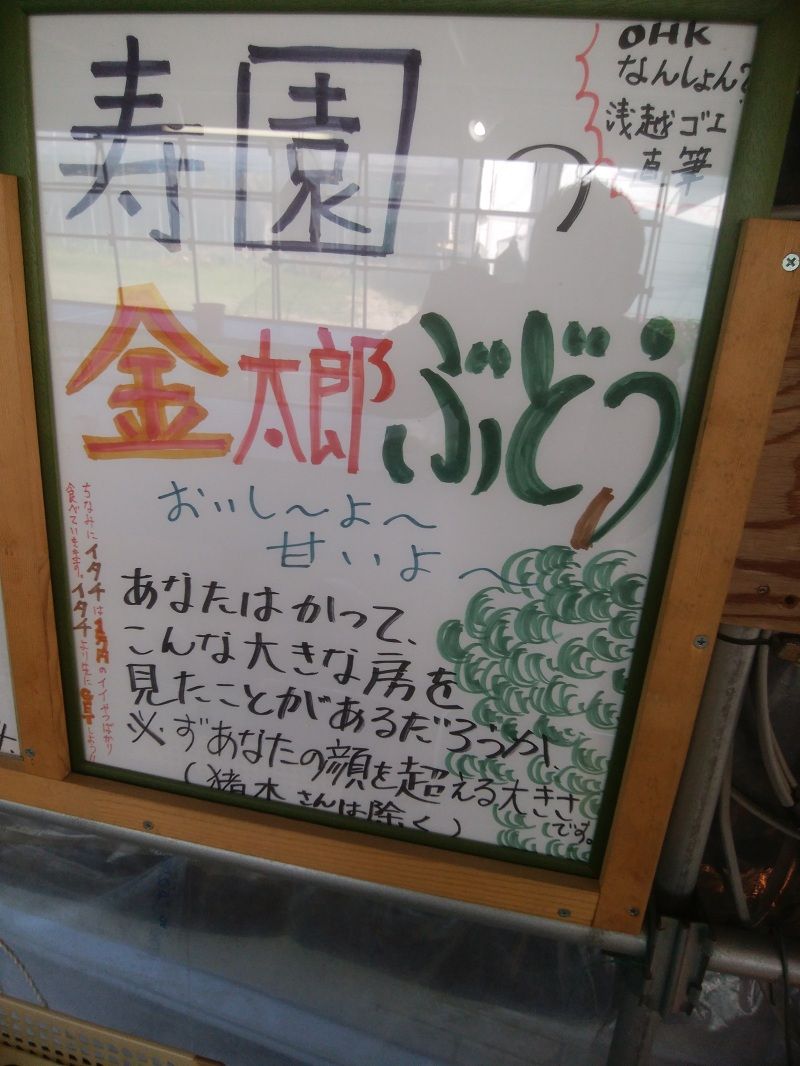 寿園の
OHK
なんしょん?
浅越ゴエ
直筆
金太郎ぶどう
おいし〜よ〜
甘いよ〜
あなたはかって、
こんな大きな房を
見たことがあるだろうか、
必ずあなたの顔を超える大きさ
です。
(猪木さんは除く)
ちなみにイタチは1万円のイイやつばかり
食べていきます。イタチより先に